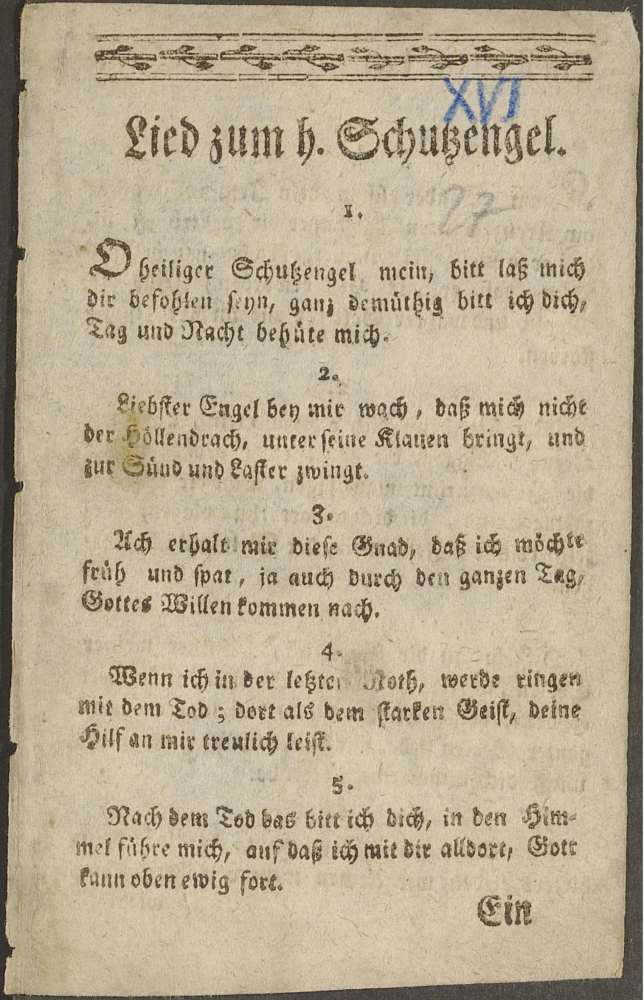 XVI
Lied zum h. Schutzengel.
27
1.
O heiliger Schutzengel mein, bitt laß mich
dir befohlen seyn, ganz demüthig bitt ich dich,
Tag und Nacht behüte mich.
2.
Liebster Engel bey mir wach, daß mich nicht
der Höllendrach, unter seine Klauen bringt, und
zur Sünd und Laster zwingt.
3.
Ach erhalt mir diese Gnad, daß ich möchte
früh und spat, ja auch durch den ganzen Tag,
Gottes Willen kommen nach.
4.
Wenn ich in der letzten Noth, werde ringen
mit dem Tod; dort als dem starken Geist, deine
Hilf an mir treulich leist.
5.
Nach dem Tod das bitt ich dich, in den Him-
mel führe mich, auf daß ich mit dir alldort, Gott
kann oben ewig fort.
Ein